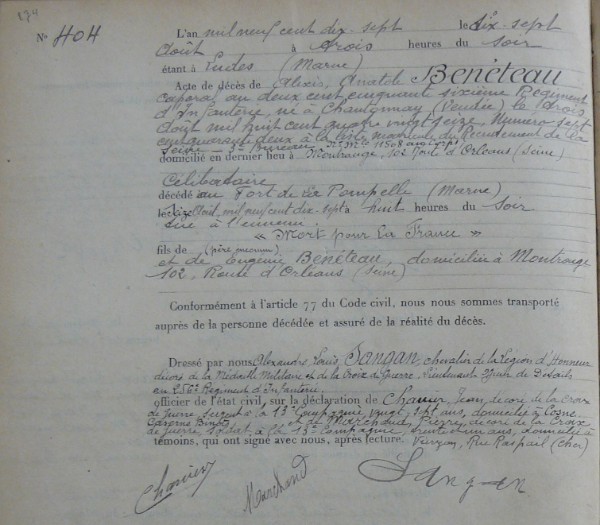 174
No 404
L'an mil neuf cent dix-sept le dix-sept
Août à trois heures du soir
étant à Ludes (Marne)
Acte de décès de Alexis, Anatole BENÉTEAU
caporal au deux cent cinquante sixième Régiment
d'Infanterie, né à Chantonnay (Vendée) le trois
Août mil huit cent quatre vingt seize, Numéro sept
cent quarante deux à la liste matricule du Recrutement de la
Seine - 3e Bureau - No Mle 11508 au corps
domicilié en dernier lieu à Montrouge, 102 Route d'Orléans (Seine)
Célibataire
décédé au Fort de la Pompelle (Marne)
le seize Août mil neuf cent dix-sept à huit heures du soir
tué à l'ennemi
« Mort pour la France »
fils de (père inconnu)
et de Eugénie BENÉTEAU, domiciliée à Montrouge
102, Route d'Orléans (Seine)
Conformément à l'article 77 du Code civil, nous nous sommes transporté
auprès de la personne décédée et assuré de la réalité du décès.
Dressé par nous Alexandre Louis, chevalier de la Légion d'Honneur
décoré de la Médaille Militaire et de la Croix de Guerre, Lieutenant, de Détails
au 256e Régiment d'Infanterie
officier de l'état civil, sur la déclaration de Jean, décoré de la Croix
de Guerre Sergent à la 13e Compagnie, vingt sept ans, domicilié à Cosne
et de Marchand, Pierre, décoré de la Croix
de Guerre Soldat, à la 13e Compagnie, trente et un ans, domicilié à
témoins, qui ont signé avec nous, après lecture. Vierzon, Rue Raspail (Cher)
Marchand